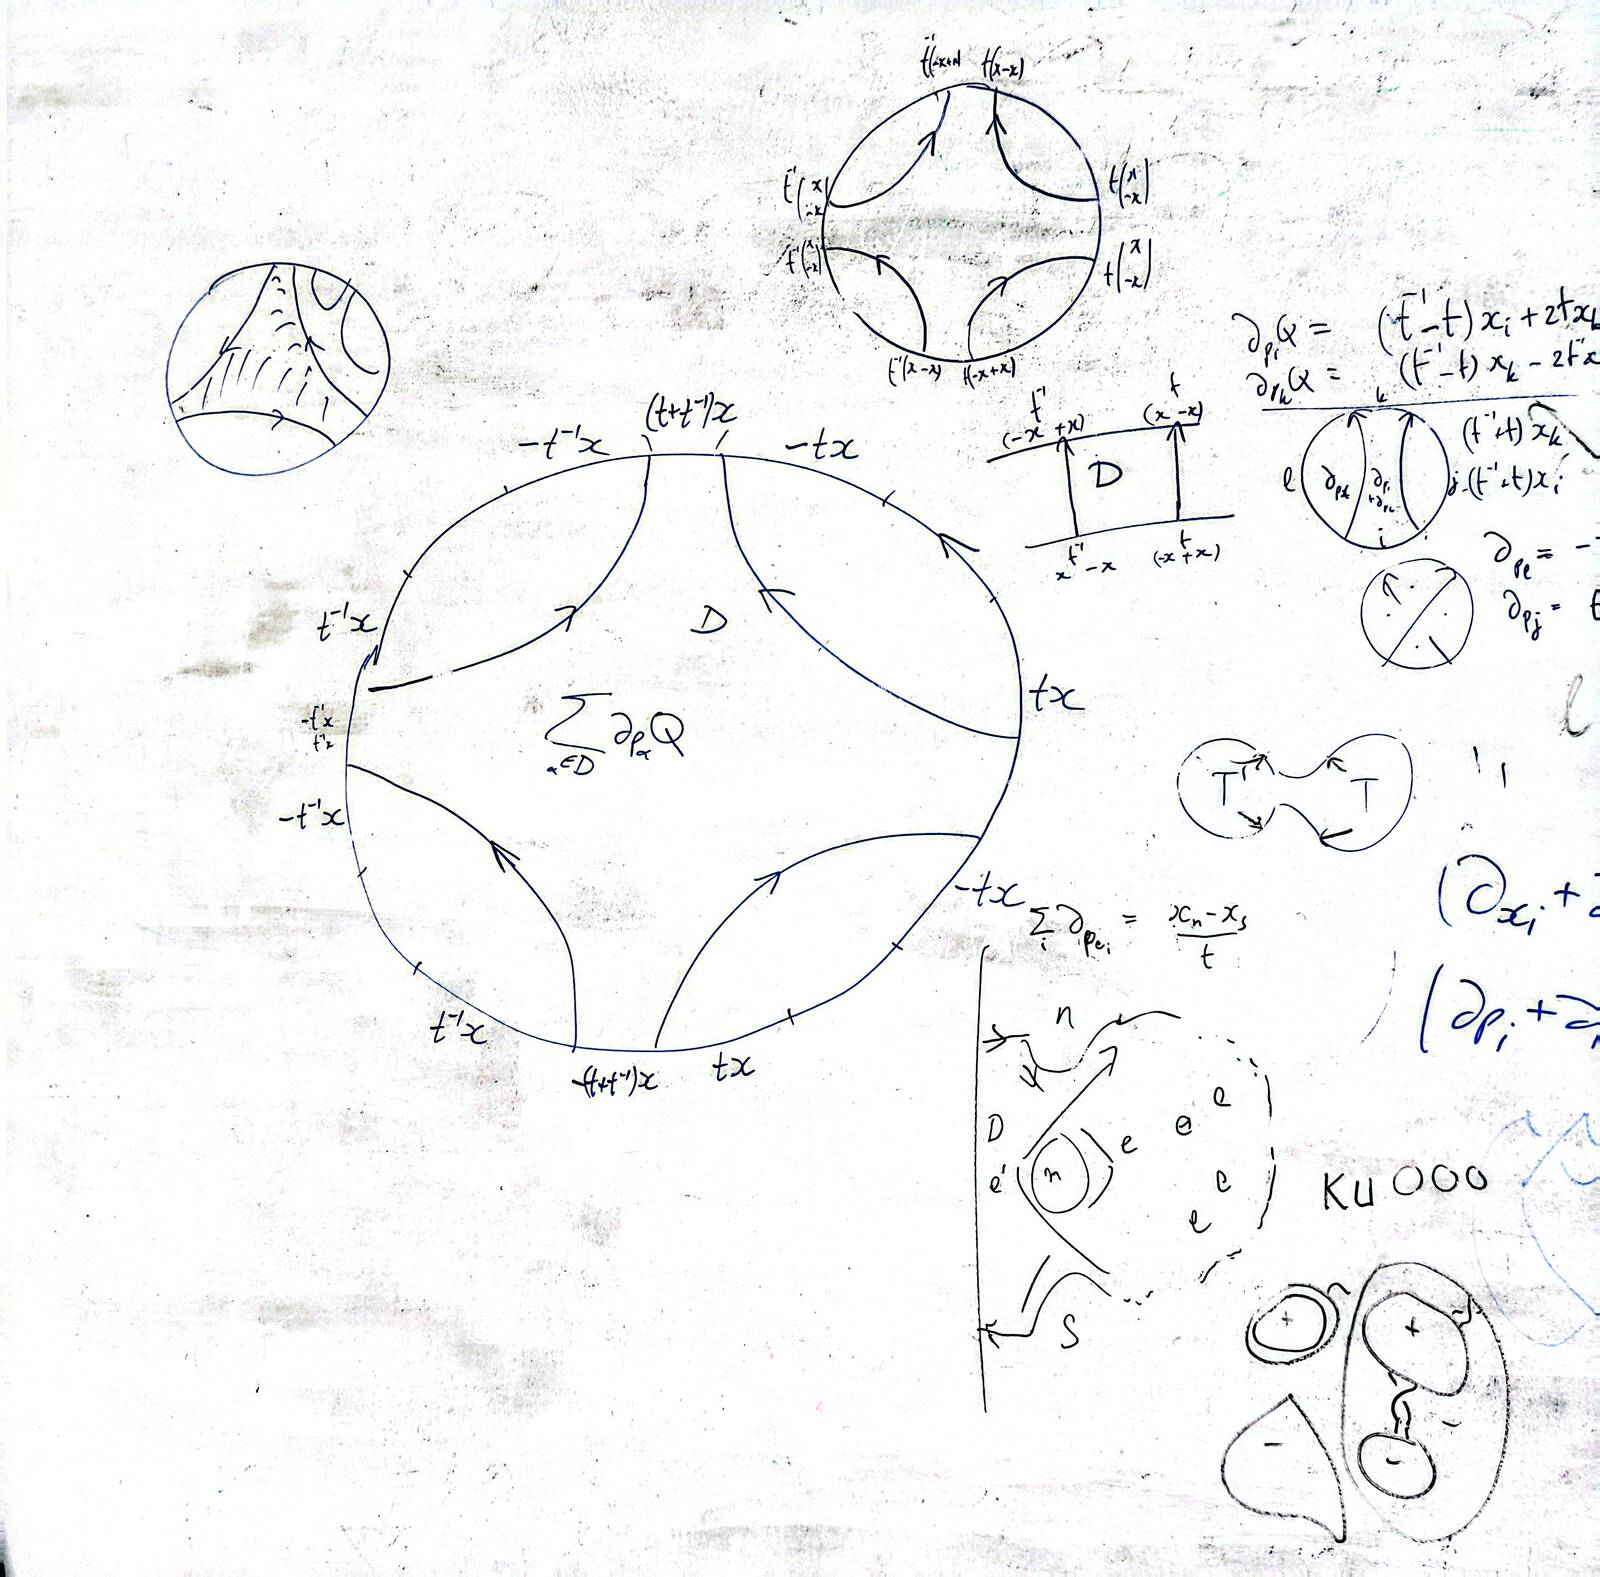 t⁻¹(-x+x) t(x-x)
t⁻¹(x -x) t(x -x)
t⁻¹(x -x) t(x -x)
t⁻¹(x-x) t(-x+x)
∂pᵢQ = (t⁻¹-t)xᵢ+2tx
∂pₖQ = (t⁻¹-t)xₖ-2t⁻¹x
k
(t⁻¹+t)xₖ
l ∂pₗ j -(t⁻¹+t)xᵢ
i
t⁻¹ t
(-x +x) (x -x)
D
t⁻¹ t
x -x (-x +x)
∂pₗ = -
∂pⱼ = t
-t⁻¹x (t+t⁻¹)x -tx
t⁻¹x
D
-t⁻¹x
t⁻¹x
∑ ∂p_αQ
α∈D
tx
-t⁻¹x
-tx
t⁻¹x
-(t+t⁻¹)x tx
T T
(∂xᵢ+
(∂pᵢ+
∑ᵢ ∂pₑᵢ = (xₙ-xₛ)/t
n
D
e' n e e e
e
e
S
KU OOO
+ +
- -
-